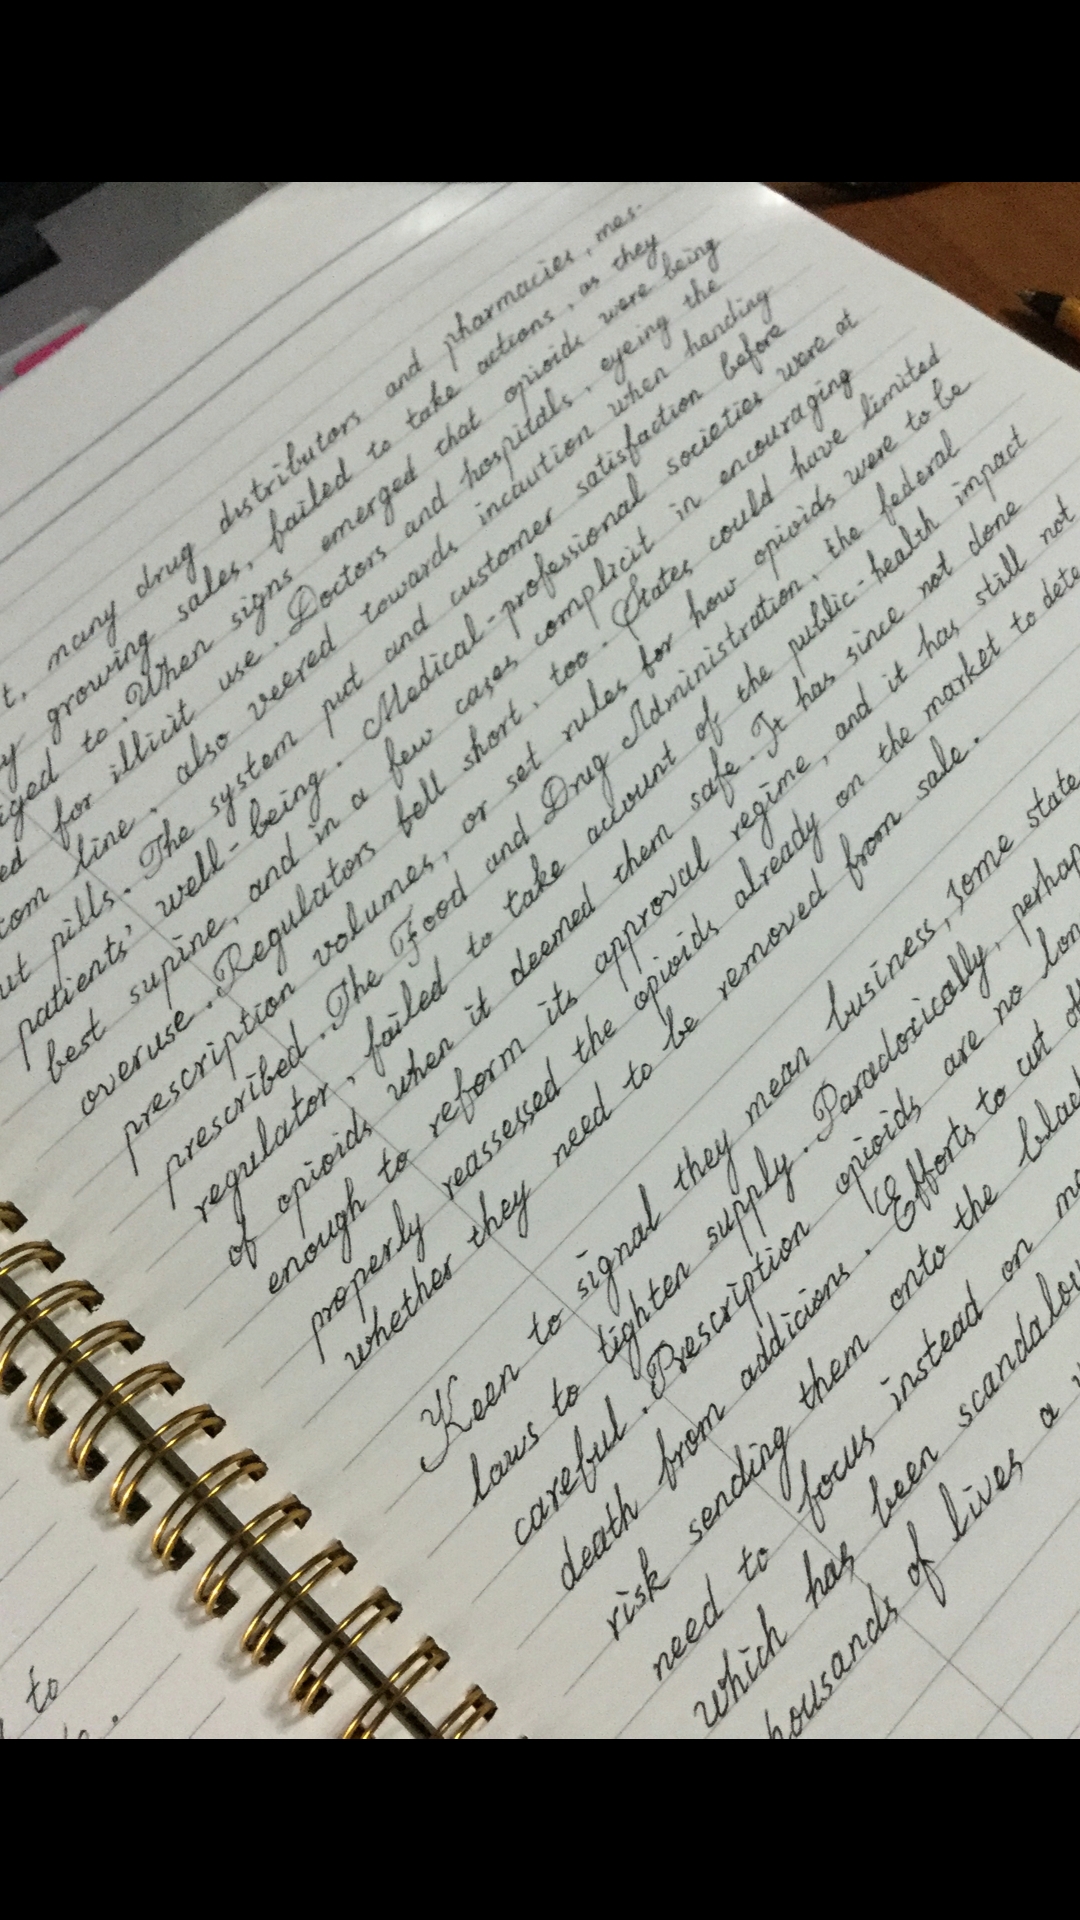 t, many drug distributors and pharmacies, mes-
growing sales, failed to take actions, as they
to. When signs emerged that opioids were being
for illicit use. Doctors and hospitals, eyeing the
line, also veered towards incaution when handing
pills. The system put and customer satisfaction before
patients' well-being. Medical-professional societies were at
best supine, and in a few cases complicit in encouraging
overuse. Regulators fell short, too. States could have limited
prescription volumes, or set rules for how opioids were to be
prescribed. The Food and Drug Administration, the federal
regulator, failed to take account of the public-health impact
of opioids when it deemed them safe. It has since not done
enough to reform its approval regime, and it has still not
properly reassessed the opioids already on the market to dete
whether they need to be removed from sale.
Keen to signal they mean business, some state
laws to tighten supply. Paradoxically, perhap
careful. Prescription opioids are no lon
death from addicions. Efforts to cut off
risk sending them onto the blac
need to focus instead on
which has been scandalou
housands of lives a
to